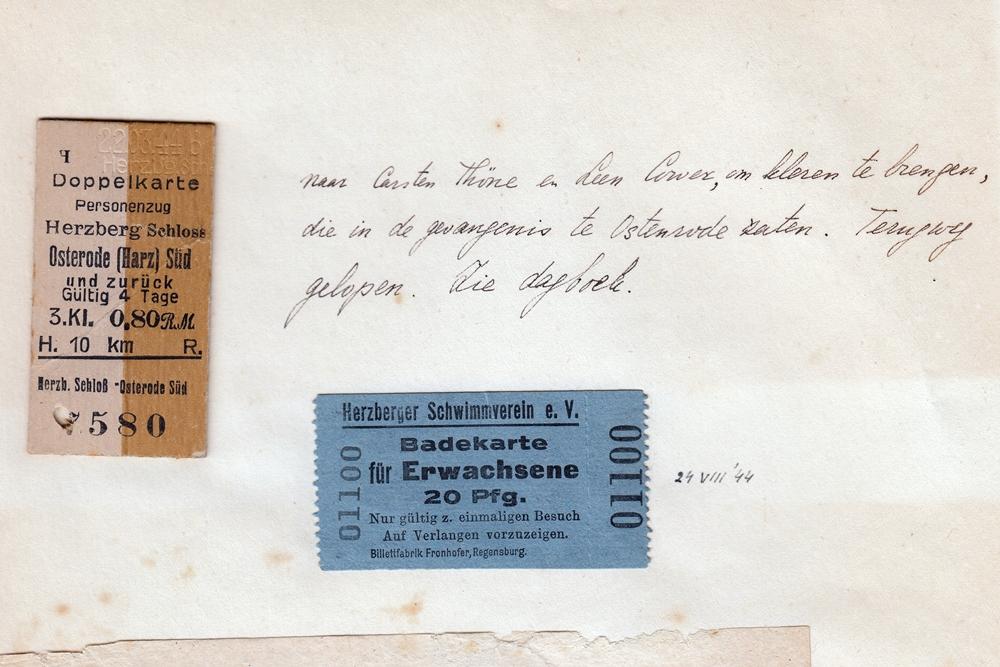 22.03.44 6
Herzberg
H
Doppelkarte
Personenzug
Herzberg Schloss
Osterode (Harz) Süd
und zurück
Gültig 4 Tage
3.Kl. 0,80 R.M.
H. 10 km R.
Herzb. Schloß -Osterode Süd
7580
naar Carsten Thöne en Leen Corver, om kleren te brengen,
die in de gevangenis te Ostenrode zaten. Terugweg
gelopen. Zie dagboek.
Herzberger Schwimmverein e. V.
01100
Badekarte
für Erwachsene
20 Pfg.
Nur gültig z. einmaligen Besuch
Auf Verlangen vorzuzeigen.
Billettfabrik Fronhofer, Regensburg.
01100
24 VIII '44